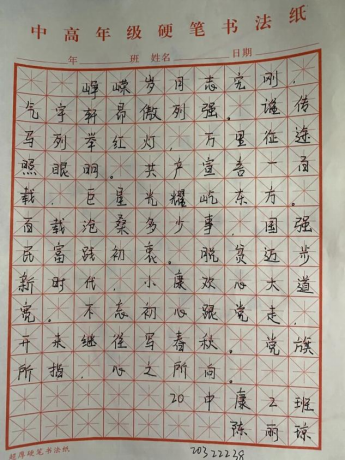 中高年级硬笔书法纸
年 班 姓名 日期
峥嵘岁月志完刚，
气宇轩昂傲列强。谁传
马列举红灯，万里征途
照眼明。共产宣告一百
载，巨星光耀屹东方。
百载沧桑多少事，国强
民富践初衷。脱贫迈步
新时代，小康欢心大道
宽。不忘初心跟党走，
开来继往写春秋。党旗
所指，心之所向。
20中康2班
陈丽琼
20322228
超厚硬笔书法纸